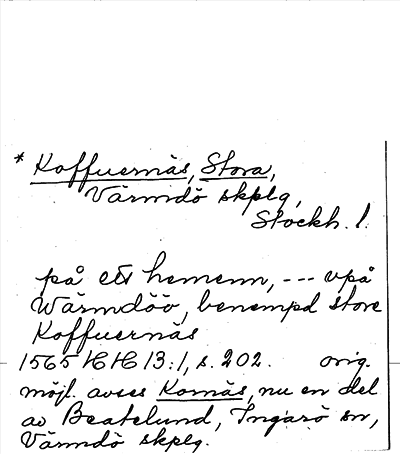 * Koffuernäs, Stora,
Värmdö skplg,
Stockh. l.
på ett hemenn, --- vpå
Wärmdöö, benempd store
Koffuernäs
1565 HH 13:1, s. 202. orig.
möjl. avses Kornäs, nu en del
av Beatelund, Ingarö sn,
Värmdö skplg.